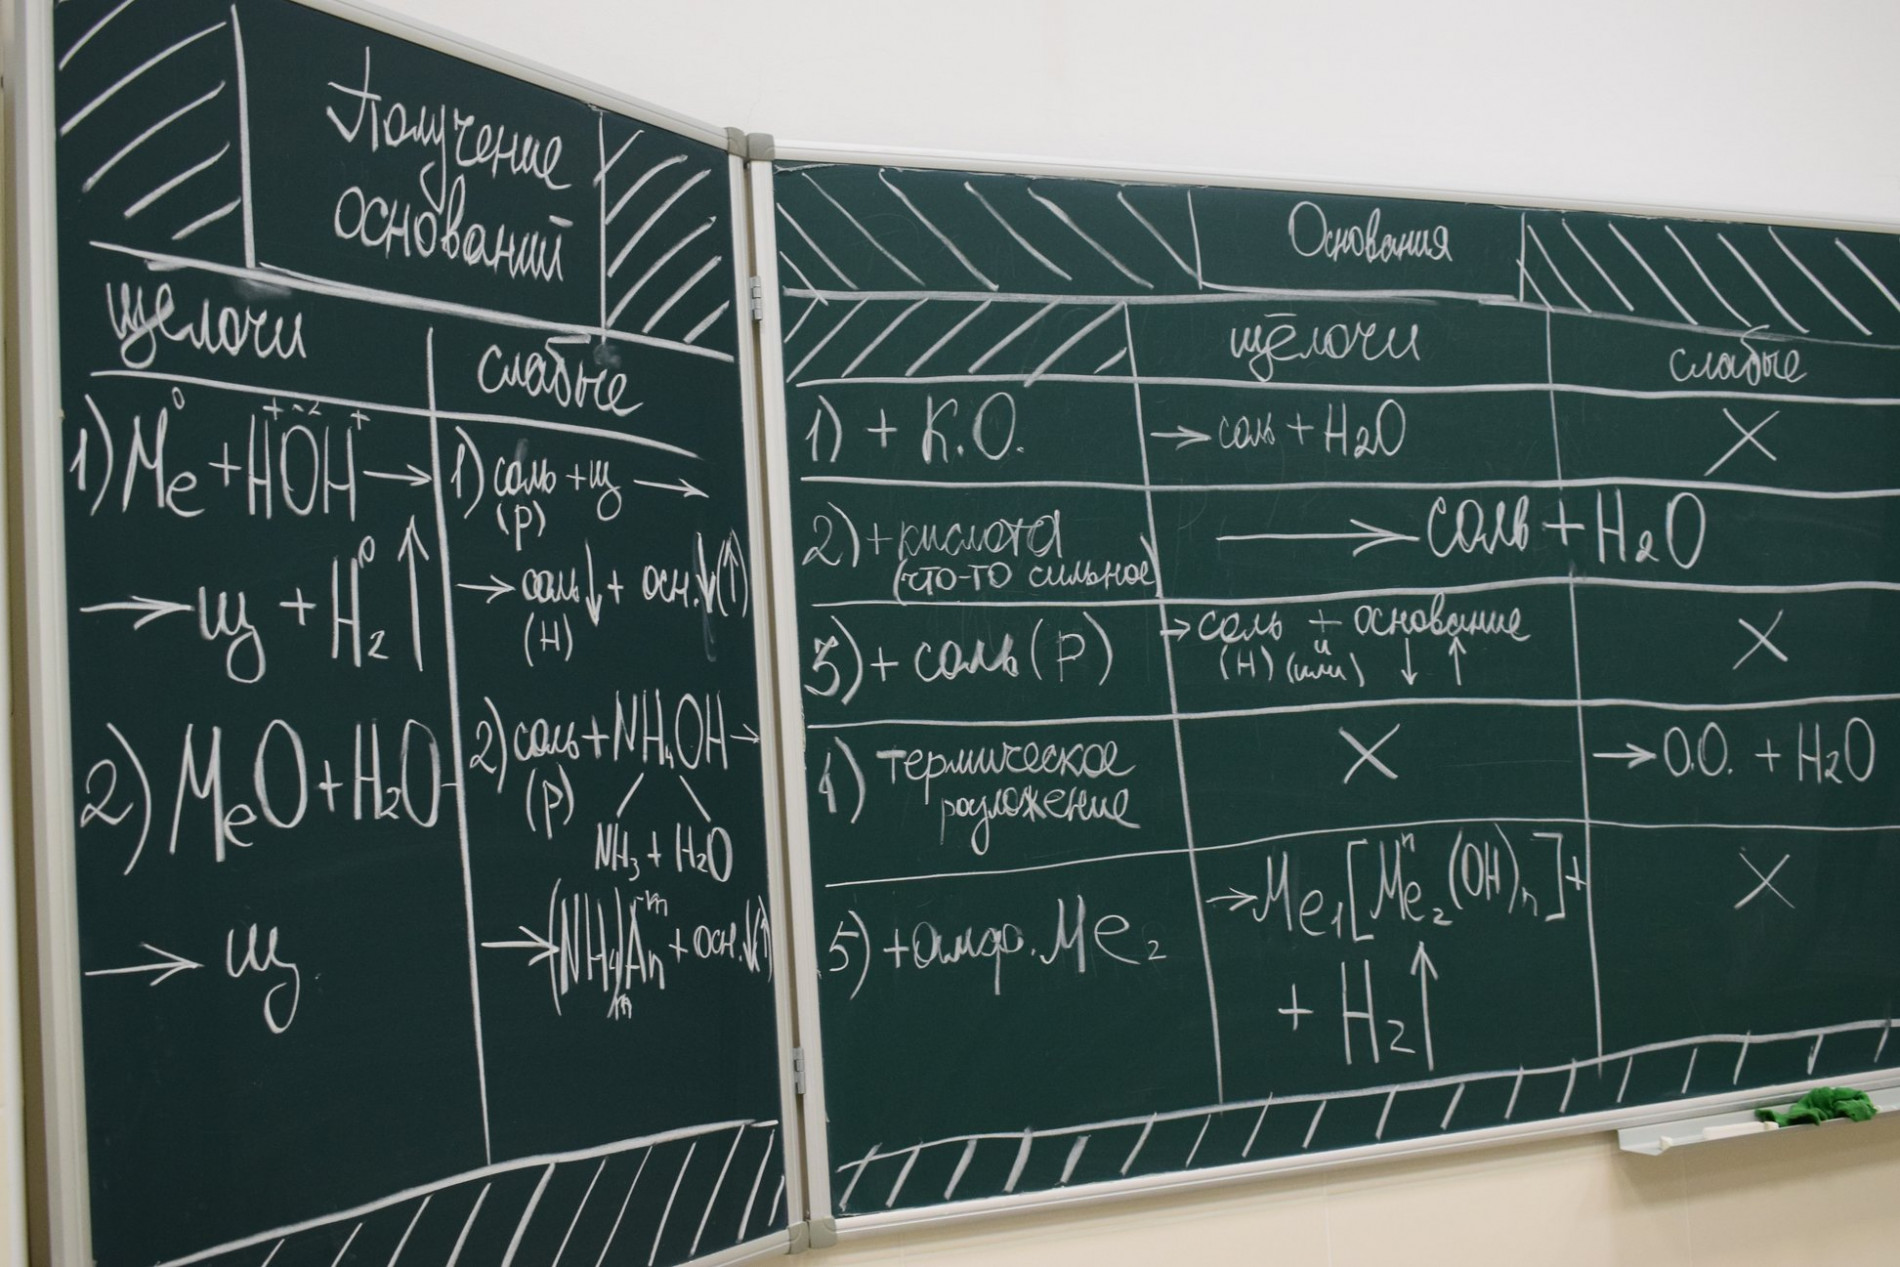 Получение
оснований
щелочи
слабые
1) Me⁰ + H⁺O⁻²H⁺ →
→ щ + H₂⁰↑
2) MeO + H₂O -
→ щ
1) соль + щ →
(р)
→ соль↓ + осн.↓(↑)
(н)
2) соль + NH₄OH →
(р)
NH₃ + H₂O
→ (NH₄)ₘAn⁻ᵐ + осн.↓(↑)
Основания
щёлочи
слабые
1) + К.О.
→ соль + H₂O
X
2) + кислота
(что-то сильное)
→ соль + H₂O
3) + соль (р)
→ соль + основание
(н) и (или) ↓ ↑
X
4) термическое
разложение
X
→ О.О. + H₂O
5) + амфо. Me₂
→ Me₁[Me₂ⁿ(OH)ₙ] +
+ H₂↑
X